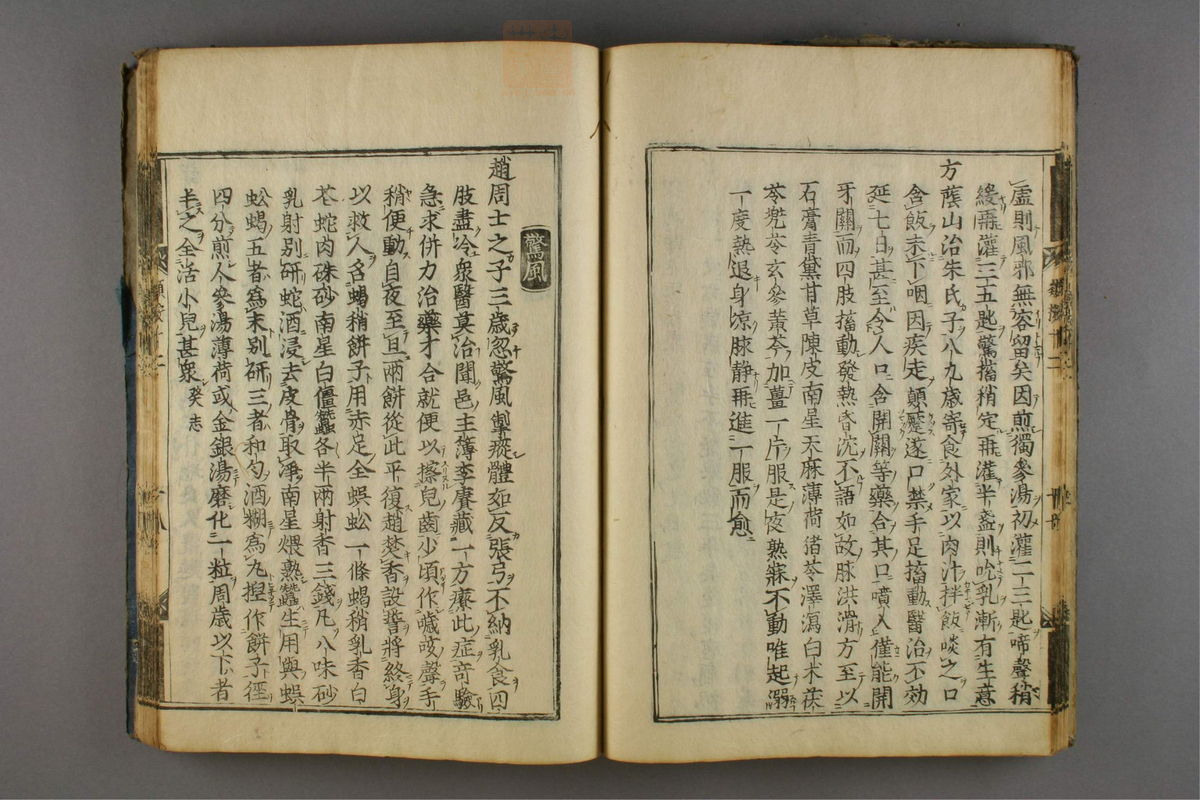 虛則風邪無容留矣因煎獨參湯初灌二三匙啼聲稍
緩再灌三五匙驚搐稍定再灌半盞則吮乳漸有生意
方蔭山治朱氏子八九歲寄食外家以肉汁拌飯啖之口
含飯未下咽因疾走顛蹷遂口禁手足搐動醫治不効
延七日甚至令人口含開關等藥合其口噴入僅能開
牙關而四肢搐動發熱昏沈不語如故脉洪滑方至以
石膏青黛甘草陳皮南星天麻薄荷猪苓澤瀉白朮茯
苓玄參黃芩加薑一片服是夜熟寐不動唯起溺
一度熱退身凉脉静再進一服而愈
驚風
趙周士之子三歲忽驚風掣瘲體如反張弓不納乳食四
肢盡冷衆醫莫治聞邑主簿李賡藏一方療此症奇驗
急求併力治藥才合就便以擦兒齒少頃作嚏咳聲手
稍便動自夜至旦兩餅從此平復趙焚香設誓將終身
以救人名蝎稍餅子用赤足全蜈蚣一條蝎稍乳香白
花蛇肉硃砂南星白僵蠶各半兩射香三錢凡八味砂
乳射别研蛇酒浸去皮骨取淨南星煨熟蠶生用與蜈
蚣蝎五者為末别研三者和勻酒糊為丸揑作餅子徑
四分煎人參湯薄荷或金銀湯磨化一粒周歲以下者
半之全活小兒甚衆 癸志